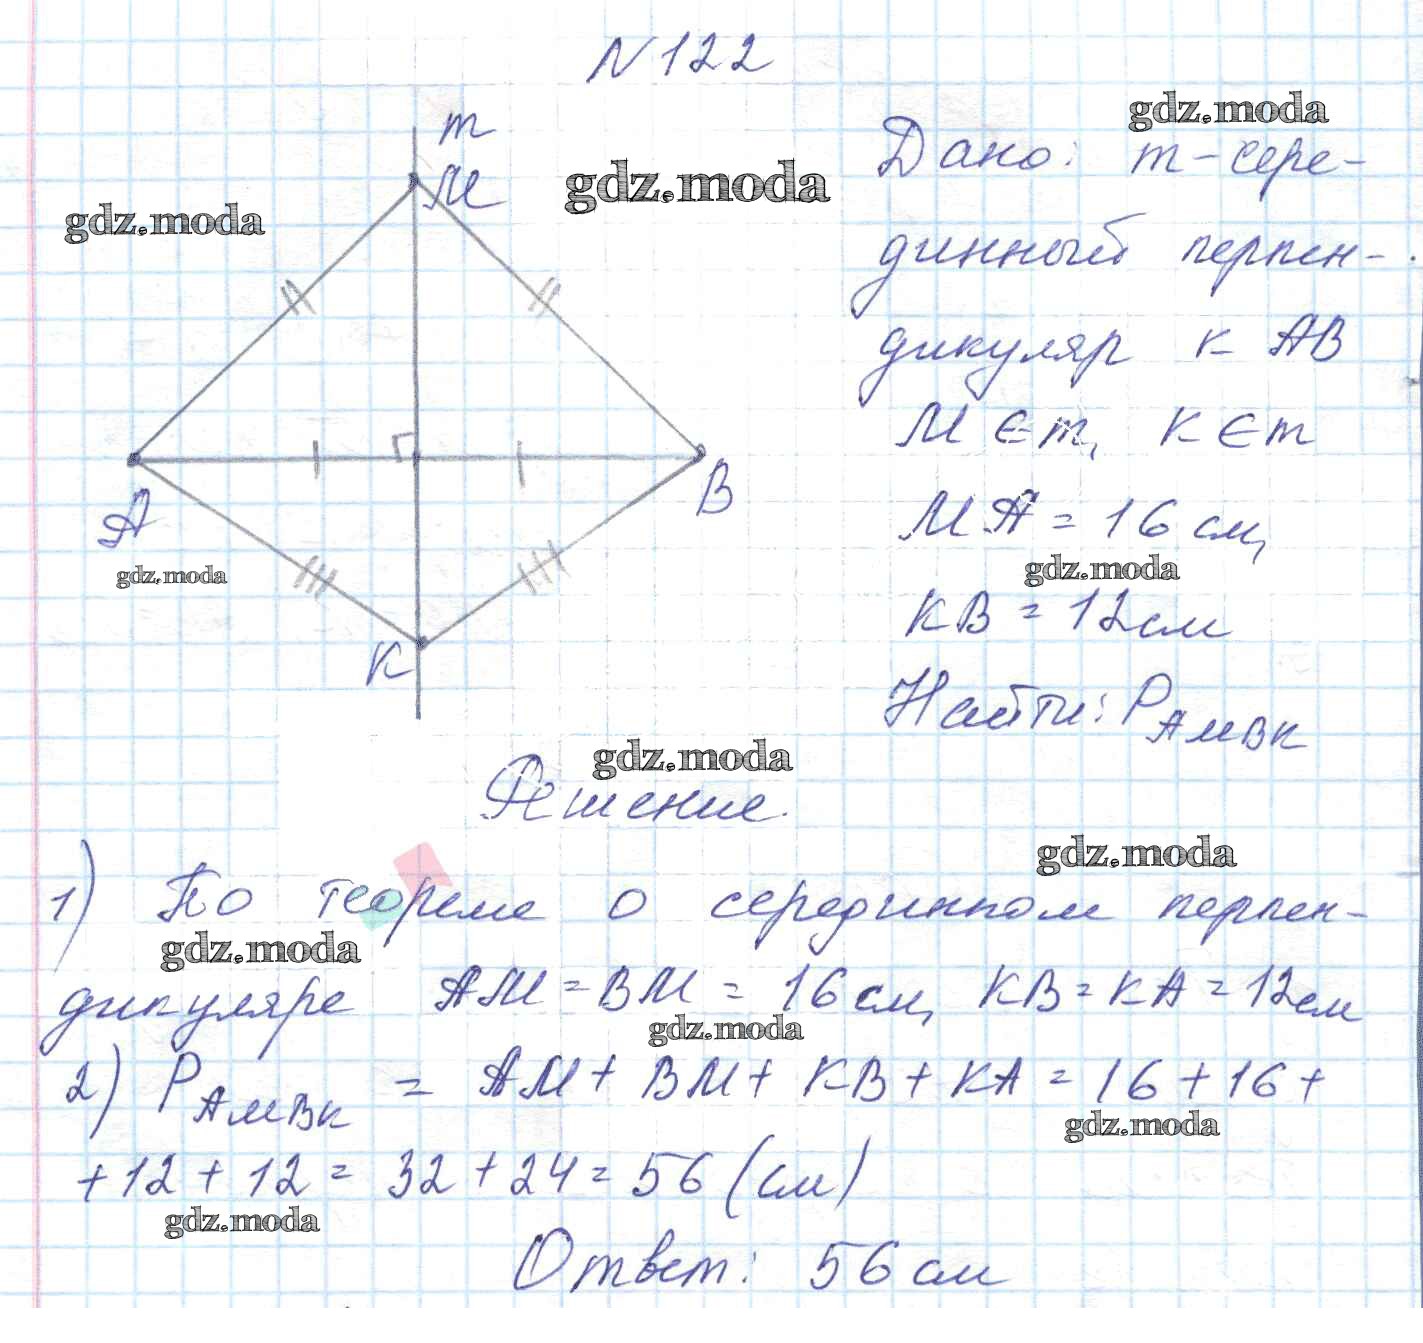 N 122
m
M
gdz.moda
gdz.moda
gdz.moda
Дано: m - сере-
динный перпен-
дикуляр к AB
M ∈ m, K ∈ m
MA = 16 см,
gdz.moda
KB = 12 см
Найти: P AMBK
A
B
gdz.moda
K
gdz.moda
Решение.
gdz.moda
1) По теореме о серединном перпен-
gdz.moda
дикуляре AM = BM = 16 см, KB = KA = 12 см
gdz.moda
2) P AMBK = AM + BM + KB + KA = 16 + 16 +
gdz.moda
+ 12 + 12 = 32 + 24 = 56 (см)
gdz.moda
Ответ: 56 см